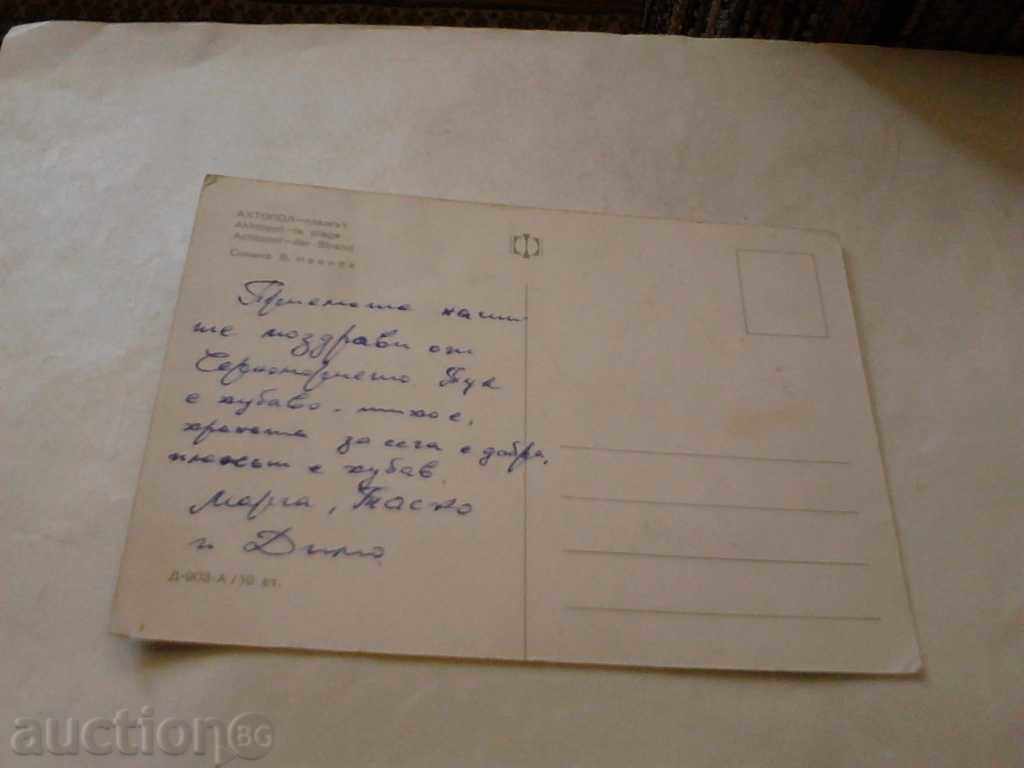 АХТОПОЛ—плажът
Ahtopol—la plage
Achtopol—der Strand
Снимка В. Иванов
Приемете наши-
те поздрави от
Черноморието Тук
е хубаво. тихо е,
храната за сега е добра,
плажът е хубав.
Марга, Таско
и Димо
Д-903-А/10 ст.
auction BG